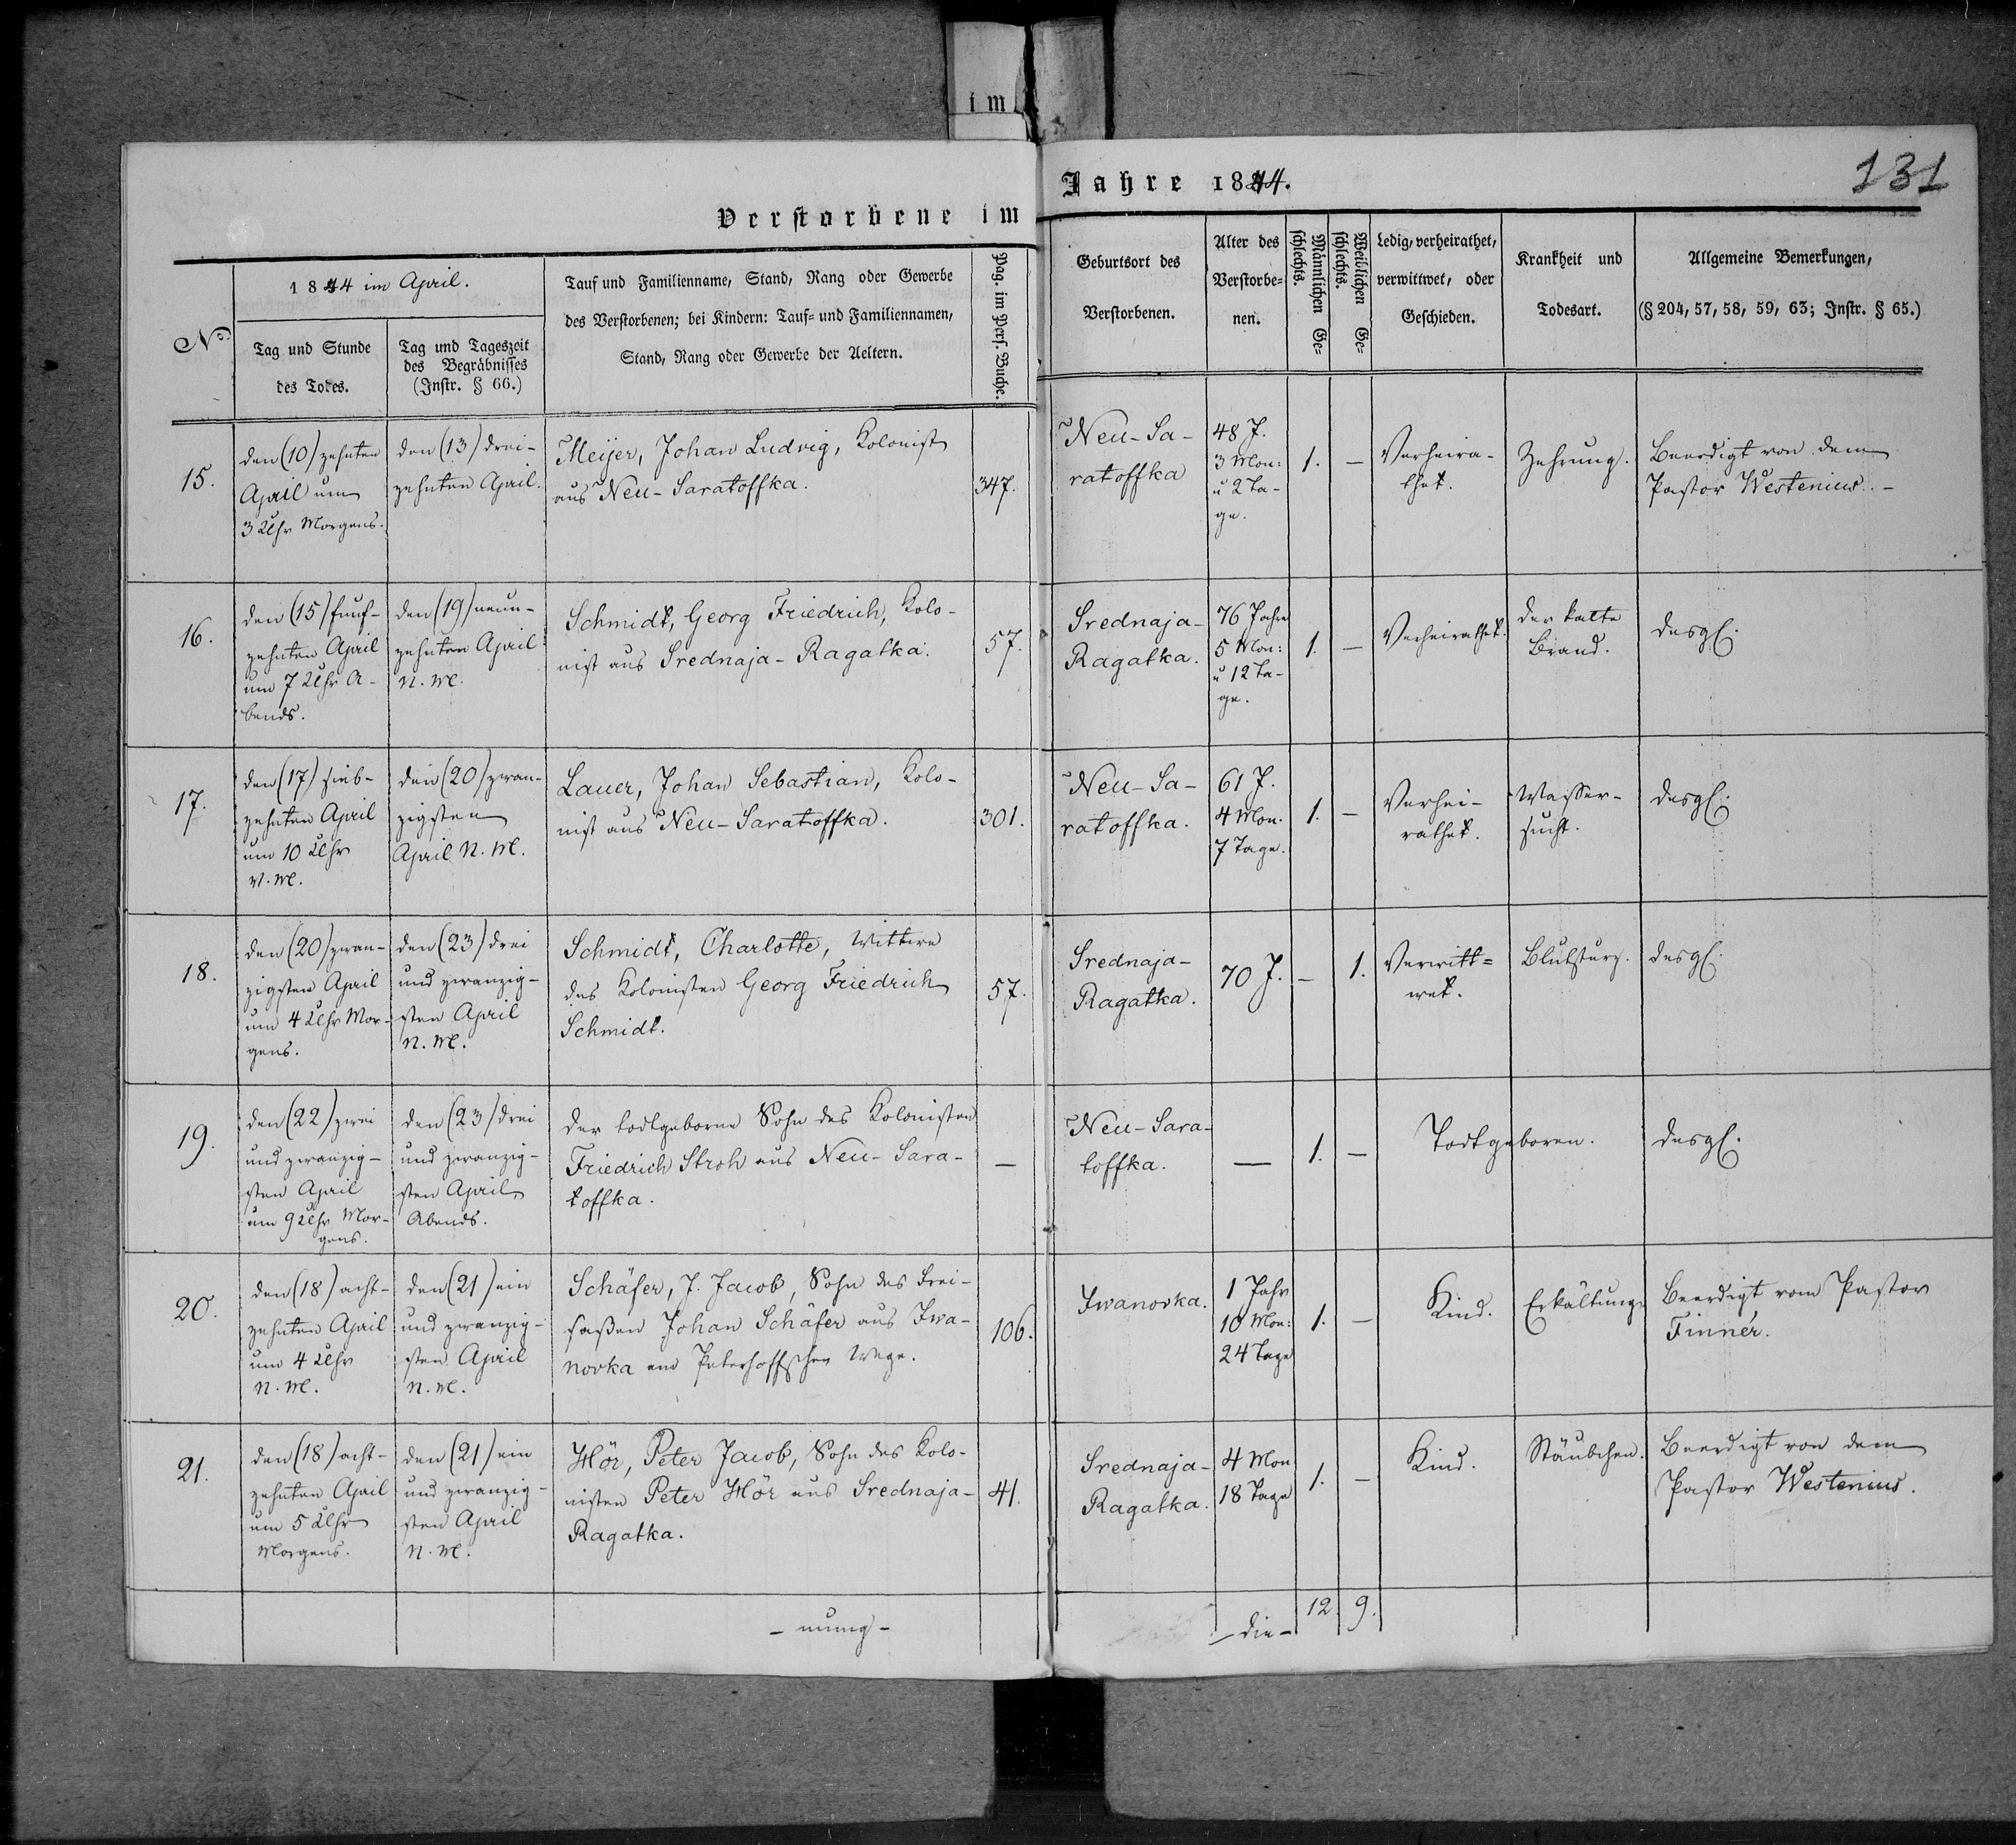 im
Verstorbene im
Jahre 1844.
131
No.
1844 im April.
Tag und Stunde
des Todes.
Tag und Tageszeit
des Begräbnisses
(Instr. § 66.)
Tauf und Familienname, Stand, Rang oder Gewerbe
des Verstorbenen; bei Kindern: Tauf= und Familiennamen,
Stand, Rang oder Gewerbe der Aeltern.
Pag. im Pers. Buche.
Geburtsort des
Verstorbenen.
Alter des
Verstorbe=
nen.
Männlichen Ge=
schlechts.
Weiblichen Ge=
schlechts.
Ledig, verheirathet,
verwittwet, oder
Geschieden.
Krankheit und
Todesart.
Allgemeine Bemerkungen,
(§ 204, 57, 58, 59, 63; Instr. § 65.)
15.
den (10) zehnten
April um
3 Uhr Morgens.
den (13) drei-
zehnten April.
Meijer, Johan Ludvig, Kolonist
aus Neu-Saratoffka.
347.
Neu-Sa-
ratoffka
48 J.
3 Mon:
u 2 Ta-
ge.
1.
–
Verheira-
thet.
Zehrung.
Beerdigt von dem
Pastor Westenius. -
16.
den (15) funf-
zehnten April
um 7 Uhr A-
bends.
den (19) neun-
zehnten April
N. M.
Schmidt, Georg Friedrich, Kolo-
nist aus Srednaja-Ragatka.
57.
Srednaja-
Ragatka.
76 Jahre
5 Mon:
u 12 Ta-
ge.
1.
–
Verheirathet.
der kalte
Brand.
desgl.
17.
den (17) sieb-
zehnten April
um 10 Uhr
V. M.
den (20) zwan-
zigsten
April N. M.
Lauer, Johan Sebastian, Kolo-
nist aus Neu-Saratoffka.
301.
Neu-Sa-
ratoffka.
61 J.
4 Mon.
7 Tage.
1.
–
Verhei-
rathet.
Wasser-
sucht.
desgl.
18.
den (20) zwan-
zigsten April
um 4 Uhr Mor-
gens.
den (23) drei
und zwanzig-
sten April
N. M.
Schmidt, Charlotte, Wittwe
des Kolonisten Georg Friedrich
Schmidt.
57.
Srednaja-
Ragatka.
70 J.
–
1.
Verwitt=
wet.
Blutsturz.
desgl.
19.
den (22) zwei
und zwanzig-
sten April
um 9 Uhr Mor-
gens.
den (23) drei
und zwanzig-
sten April
Abends.
Der todtgeborne Sohn des Kolonisten
Friedrich Stroh aus Neu-Sara-
toffka.
–
Neu-Sara-
toffka.
–
1.
–
Todtgeboren.
desgl.
20.
den (18) acht-
zehnten April
um 4 Uhr
N. M.
den (21) ein
und zwanzig-
sten April
N. M.
Schäfer, J. Jacob, Sohn des Frei-
saßen Johan Schäfer aus Iwa-
novka am Peterhoffschen Wege.
106.
Iwanovka.
1 Jahr
10 Mon:
24 Tage
1.
–
Kind.
Erkältung.
Beerdigt vom Pastor
Finnér.
21.
den (18) acht-
zehnten April
um 5 Uhr
Morgens.
den (21) ein
und zwanzig-
sten April
N. M.
Hör, Peter Jacob, Sohn des Kolo-
nisten Peter Hör aus Srednaja-
Ragatka.
41.
Srednaja-
Ragatka.
4 Mon
18 Tage
1.
–
Kind.
Stäubchen.
Beerdigt von dem
Pastor Westenius.
- die -
12.
9.